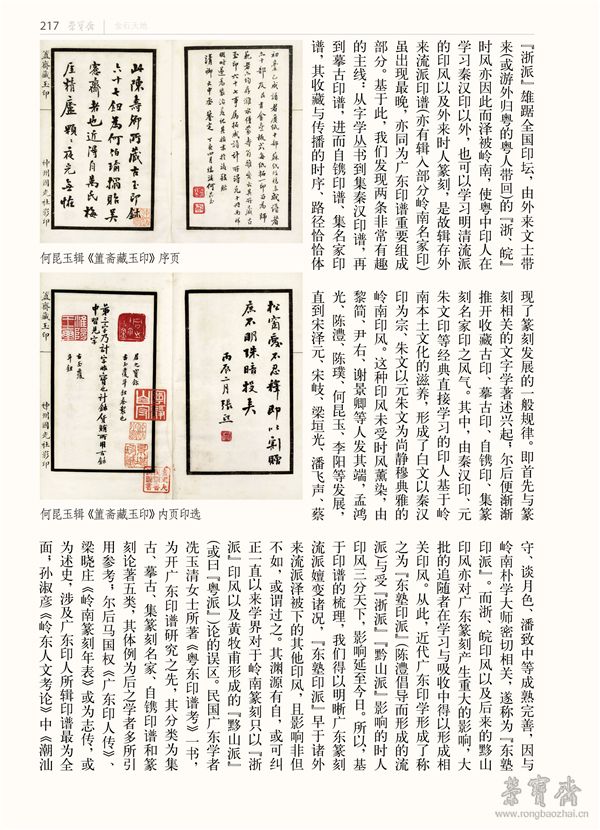 217
荣宝斋
金石天地
『浙派』雄踞全国印坛，由外来文士带
来(或游外归粤的粤人带回)的『浙、皖』
时风亦因此而泽被岭南，使粤中印人在
学习秦汉印以外，也可以学习明清流派
的印风以及外来时人篆刻，是故辑存外
来流派印谱(亦有辑入部分岭南名家印)
虽出现最晚，亦同为广东印谱重要组成
部分。基于此，我们发现两条非常有趣
的主线：从字学丛书到集秦汉印谱，再
到摹古印谱，进而自镌印谱、集名家印
谱，其收藏与传播的时序、路径恰恰体
此陳壽卿所藏古玉印
六十七鈕為何伯瑜搨貽吳
愙齋者也近得自萬氏梅
簠斋藏玉印
神州国光社影印
何昆玉辑《簠斋藏玉印》序页
现了篆刻发展的一般规律。即首先与篆
刻相关的文字学著述兴起；尔后便渐渐
推开收藏古印、摹古印、自镌印、集篆
刻名家印之风气。其中，由秦汉印、元
朱文印等经典直接学习的印人基于岭
南本土文化的滋养，形成了白文以秦汉
印为宗、朱文以元朱文为尚静穆典雅的
岭南印风。这种印风未受时风薰染，由
黎简、尹右、谢景卿等人发其端，孟鸿
光、陈澧、陈璞、何昆玉、李阳等发展，
直到宋泽元、宋岐、梁垣光、潘飞声、蔡
松窗愛不忍釋即以割贈
庶不明珠暗投矣
丙辰二月
簠斋藏玉印
神州国光社影印
何昆玉辑《簠斋藏玉印》内页印选
守、谈月色、潘致中等成熟完善，因与
岭南朴学大师密切相关，遂称为『东塾
印派』。而浙、皖印风以及后来的黟山
印风亦对广东篆刻产生重大的影响，大
批的追随者在学习与吸收中得以形成相
关印风。从此，近代广东印学形成了称
之为『东塾印派』(陈澧倡导而形成的流
派)与受『浙派』『黟山派』影响的时人
印风三分天下，影响延至今日。所以，基
于印谱的梳理，我们得以明晰广东篆刻
流派嬗变诸况，『东塾印派』早于诸外
来流派泽被下的其他印风，且影响非但
不如，或谓过之。其渊源有自，或可纠
正一直以来学界对于岭南篆刻只以『浙
派』印风以及黄牧甫形成的『黟山派』
(或曰『粤派』)论的误区。民国广东学者
冼玉清女士所著《粤东印谱考》一书，
为开广东印谱研究之先，其分类为集
古、摹古、集篆刻名家、自镌印谱和篆
刻论著五类，其体例为后之学者多所引
用参考；尔后马国权《广东印人传》、
梁晓庄《岭南篆刻年表》或为志传，或
为述史，涉及广东人所辑印谱最为全
面；孙淑彦《岭东人文考论》中《潮汕
荣宝斋
www.rongbaozhai.cn